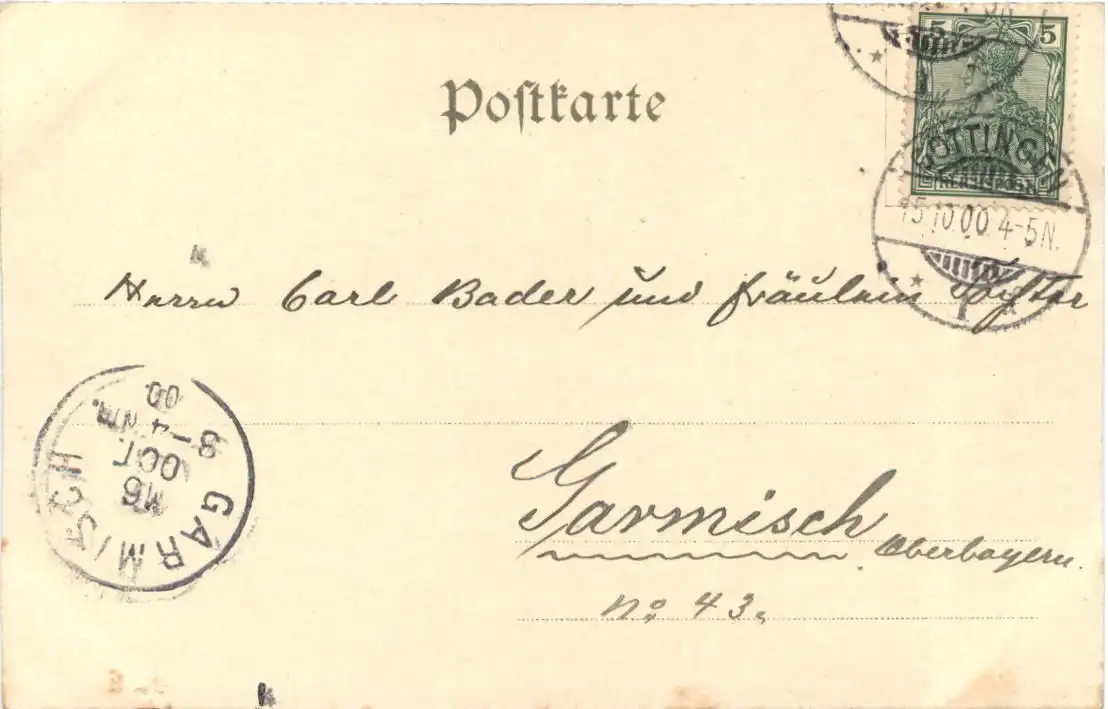 Postkarte
5 5
REICHSPOST
GÖTTINGEN
15.10.00.4-5N.
1
Herrn Carl Bader und Fräulein
GARMISCH
OCT.
00
Garmisch
Oberbayern.
No 43.